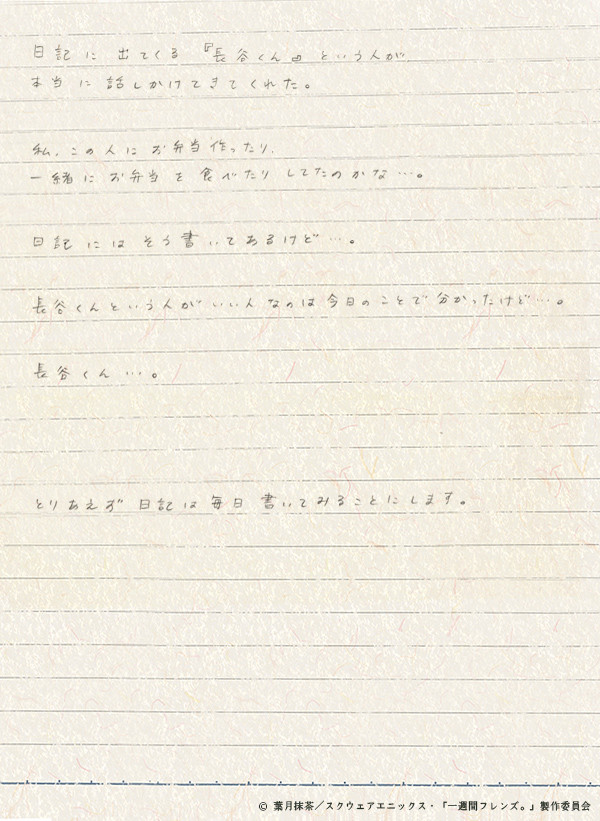 日記に出てくる『長谷くん』という人が、
本当に話しかけてきてくれた。
私、この人にお弁当作ったり、
一緒にお弁当を食べたりしてたのかな…。
日記にはそう書いてあるけど…。
長谷くんという人がいい人なのは今日のことで分かったけど…。
長谷くん…。
とりあえず日記は毎日書いてみることにします。
© 葉月抹茶／スクウェアエニックス・「一週間フレンズ。」製作委員会